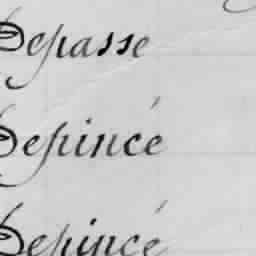 Depasse
Depincé
Depincé